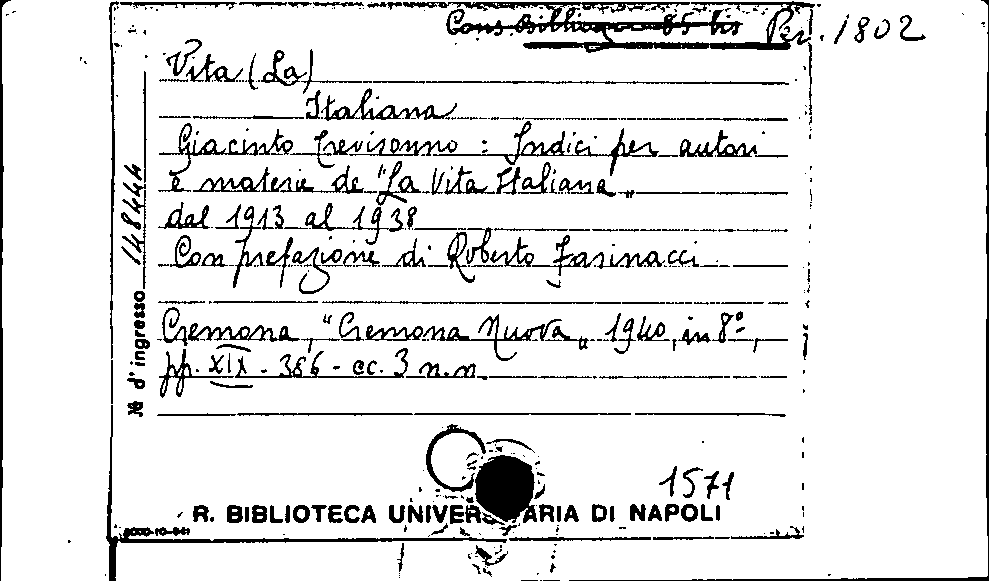 Cons. Bibliog. 85 bis Per. 1802
Vita (La)
Italiana
Giacinto Trevisonno : Indici per autori
e materie de "La Vita Italiana"
dal 1913 al 1938
Con prefazione di Roberto Farinacci
Cremona, "Cremona Nuova" 1940, in 8º,
pp. XIX - 386 - cc. 3 n.n.
№ d'ingresso 148444
1571
R. BIBLIOTECA UNIVERSITARIA DI NAPOLI